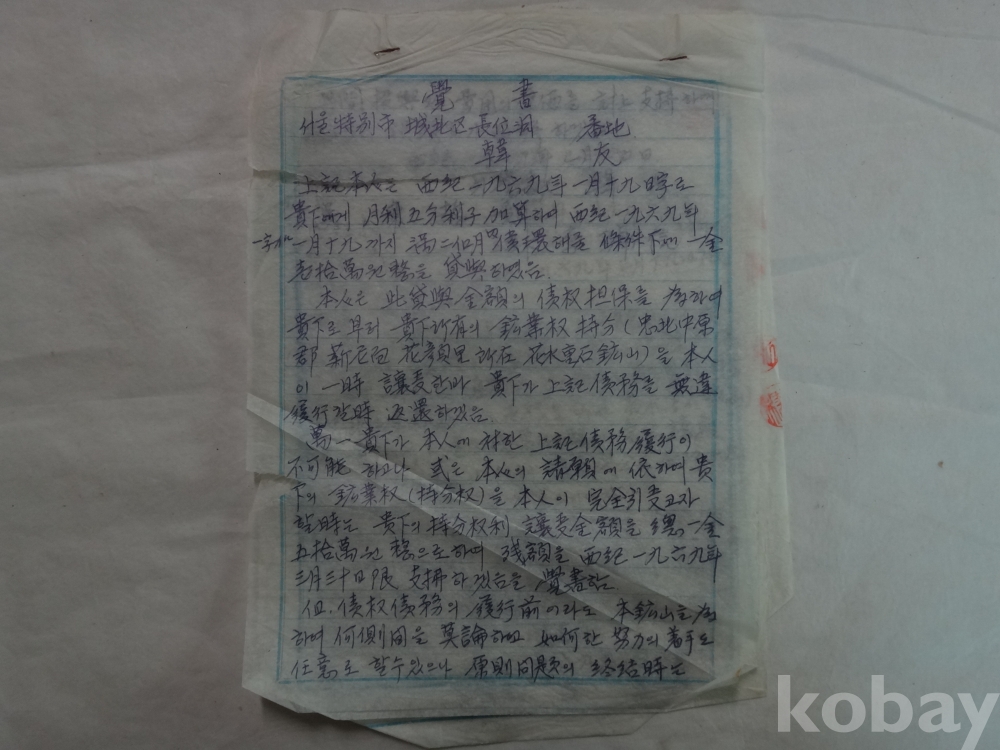 覺 書
서울特別市 城北区 長位洞 番地
韓 友
上記本人은 西紀 一九六九年 一月十九日字로
貴下에게 月利五分利子 加算하여 西紀 一九六九年
一月十九 까지 満二個月 債還해줄 條件下에 一金
壱拾萬원整을 貸與하였음.
本人은 此貸與金額의 債权担保를 為하여
貴下로부터 貴下所有의 鉱業权 持分(忠北中原
郡 薪尼面 花顔里 所在 花水重石鉱山)을 本人
이 一時 讓受한바 貴下가 上記債務를 無違
履行할時 返還하겠음.
萬一 貴下가 本人에 対한 上記債務履行이
不可能 하고나 或은 本人의 請願에 依하여 貴
下의 鉱業权(持分权)을 本人이 完全引受고자
할時는 貴下의 持分权利 讓受金額을 總一金
五拾萬원整으로하며 殘額을 西紀 一九六九年
三月三十日限 支拂하겠음을 覺書함
但. 債权債務의 履行前이라도 本鉱山을 為
하여 何側間을 莫論하고 如何한 努力의 着手도
任意로 할수있으나 原則问題의 终结時는
kobay